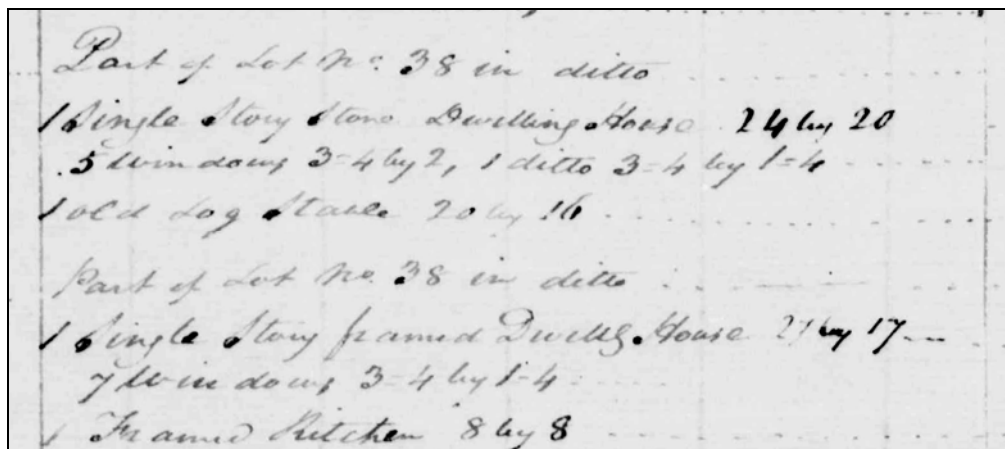 Part of Lot No. 38 in ditto
1 Single Story Stone Dwelling House 24 by 20
5 windows 3=4 by 2, 1 ditto 3=4 by 1=4
1 old Log Stable 20 by 16
Part of Lot No. 38 in ditto
1 Single Story framed Dwellg House by 17
7 windows 3=4 by 1=4
1 Framed Kitchen 8 by 8